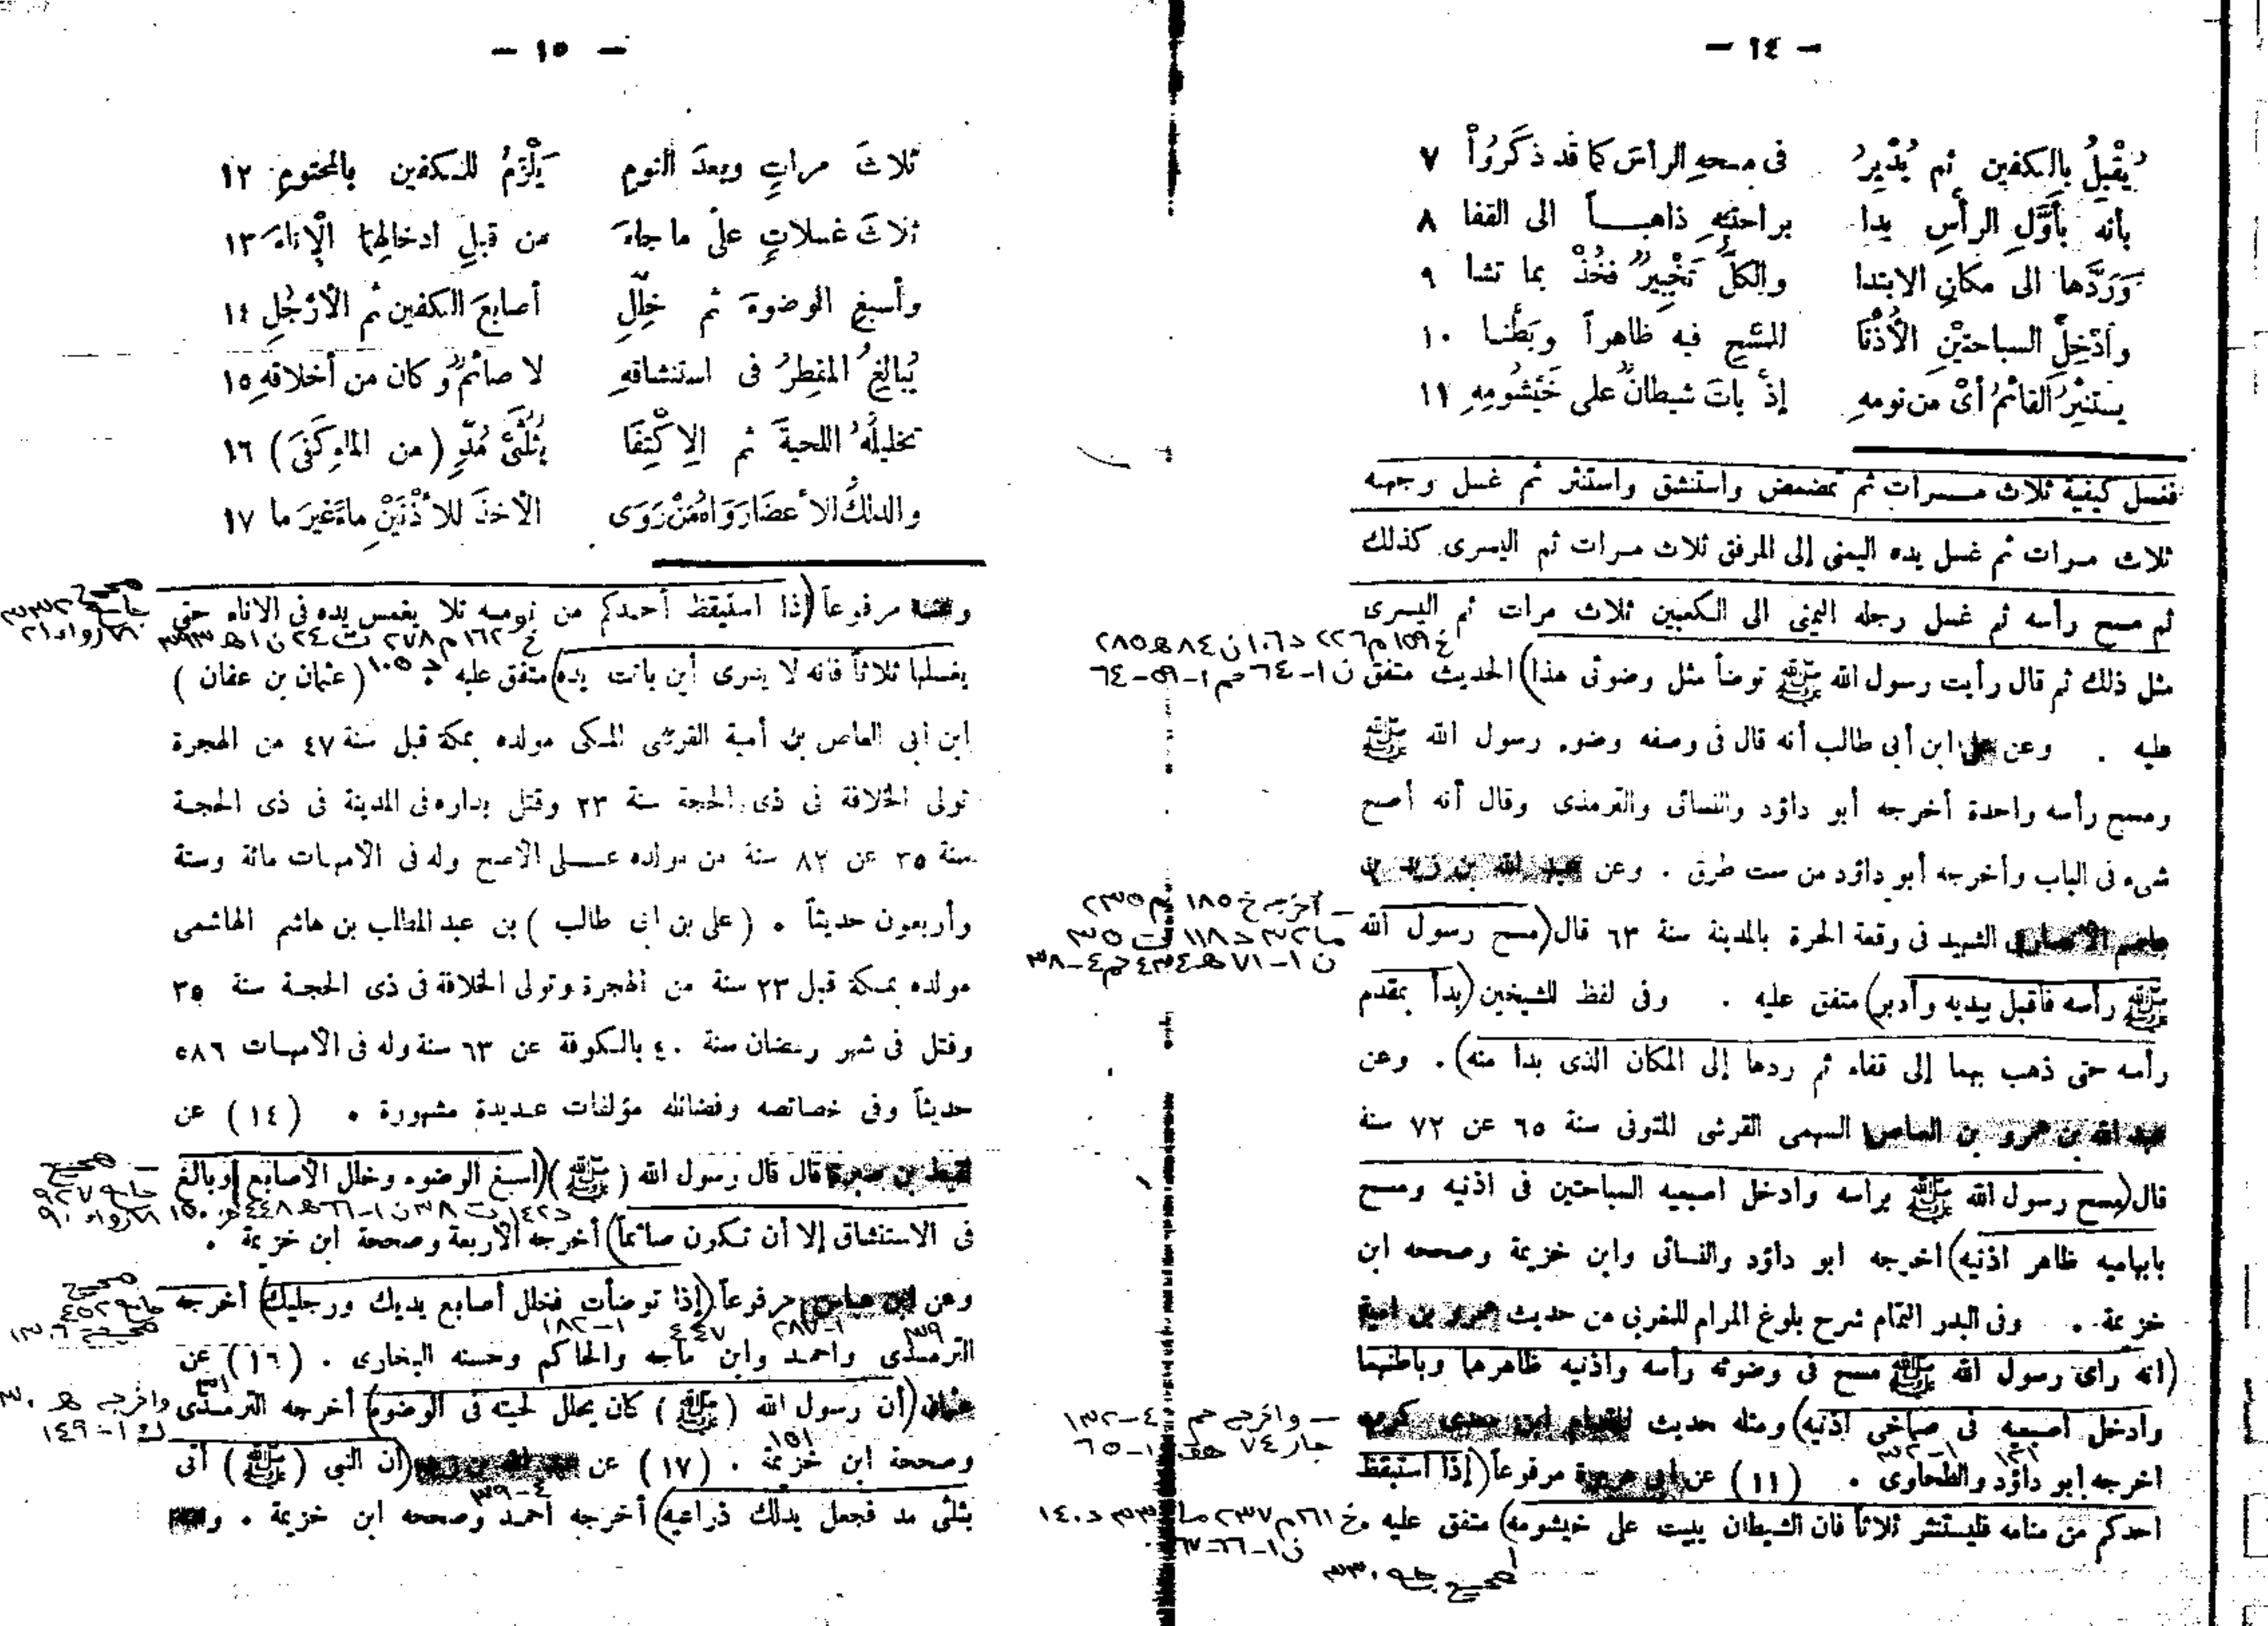 — ١٤ —
يُقْبِلُ بالكفين ثم يُدْبِرُ فى مسحهِ الرأسَ كما قد ذَكَرُواْ ٧
بأنه بأَوَّلِ الرأسِ بدا براحتيهِ ذاهبـــاً الى القفا ٨
وَرَدَّها الى مكانِ الابتدا والكلُّ تَخْيِيرٌ فخُذْ بما تشا ٩
وأَدْخِلِ السباحتيْنِ الأُذْنَا المسْحِ فيه ظاهراً وبَطْنـا ١٠
يستنثِرُ القائمُ أىْ من نومهِ إذْ باتَ شيطانٌ على خَيْشُومِهِ ١١
فغسل كيفية ثلاث مــرات ثم تمضمض واستنشق واستنثر ثم غسل وجهه
ثلاث مرات ثم غسل يده اليمنى إلى المرفق ثلاث مرات ثم اليسرى كذلك
ثم مسح رأسه ثم غسل رجله اليمنى الى الكعبين ثلاث مرات ثم اليسرى
خ ١٥٩ م ٢٢٦ د ١٠٦ ن ٨٤ هـ ٢٨٥
مثل ذلك ثم قال رأيت رسول الله ﷺ توضأ مثل وضوئى هذا) الحديث متفق ن ١-٦٤ حم ١-٥٩-٦٤
عليه . وعن على ابن أبي طالب أنه قال فى وصفه وضوء رسول الله ﷺ
ومسح رأسه واحدة أخرجه أبو داؤد والنسائى والترمذى وقال أنه أصح
شىء فى الباب وأخرجه أبو داؤد من ست طرق . وعن عبد الله بن زيد بن
— أخرجه خ ١٨٥ م ٢٣٥
عاصم الأنصارى الشهيد فى وقعة الحرة بالمدينة سنة ٦٣ قال (مسح رسول الله ما ٣٢ د ١١٨ ت ٣٥
ن ١-٧١ هـ ٤٣٤ حم ٤-٣٨
ﷺ رأسه فأقبل بيديه وأدبر) متفق عليه . وفى لفظ للشيخين (بدأ بمقدم
رأسه حتى ذهب بهما إلى قفاه ثم ردها إلى المكان الذى بدا منه) . وعن
عبد الله بن عمرو بن العاص السهمى القرشى المتوفى سنة ٦٥ عن ٧٢ سنة
قال (مسح رسول الله ﷺ برأسه وادخل اصبعيه السباحتين فى اذنيه ومسح
بابهاميه ظاهر اذنيه) اخرجه ابو داؤد والنسائى وابن خزيمة وصححه ابن
خزيمة . وفى البدر التمام شرح بلوغ المرام للمغربي من حديث عمرو بن امية
(انه راى رسول الله ﷺ مسح فى وضوئه رأسه واذنيه ظاهرها وباطنهما
وادخل اصبعيه فى صماخى اذنيه) ومثله حديث المقدام ابن معدى كرب — واخرجه حم ٤-١٣٢
جار ٧٤ هق ١-٦٥
اخرجه ابو داؤد والطحاوى . (١١) عن ابى هريرة مرفوعاً (إذا استيقظ
احدكم من منامه فليستنثر ثلاثاً فان الشيطان يبيت على خيشومه) متفق عليه خ ١٦١ م ٢٣٧ ما ٣٣ د ١٤٠
ن ١-٦٦-٦٧
صحيح جامع ٣٣٠
— ١٥ —
ثلاثَ مراتٍ وبعدَ النومِ يَلْزَمُ للكفين بالمحتومِ ١٢
ثلاثَ غسلاتٍ على ما جاءَ من قبلِ ادخالِها الْإناءَ ١٣
وأسبغِ الوضوءَ ثم خَلِّلِ أصابعَ الكفين ثم الأَرْجُلِ ١٤
يُبالِغُ المفطرُ فى استنشاقهِ لا صائمٌ وكان من أخلاقهِ ١٥
تخليلُهُ اللحيةَ ثم الِاكْتِفَا بثُلُثَىْ مُدٍّ (من الماءِ كَفَى) ١٦
والدلكُ الأعضَا رَوَاهُ مَنْ رَوَى الأخذَ للأُذْنَيْنِ ماءً غيرَ ما ١٧
وعنه مرفوعاً (إذا استيقظ أحدكم من نومه فلا يغمس يده فى الاناء حتى صحيح جامع ٣٣٢
خ ١٦٢ م ٢٧٨ ت ٢٤ ن ١ هـ ٣٩٣
يغسلها ثلاثاً فانه لا يدرى أين باتت يده) متفق عليه د ١٠٥ (عثمان بن عفان)
ابن ابى العاص بن أمية القرشى المكى مولده بمكة قبل سنة ٤٧ من الهجرة
تولى الخلافة فى ذى الحجة سنة ٢٣ وقتل بداره فى المدينة فى ذى الحجة
سنة ٣٥ عن ٨٢ سنة من مولده عــلى الأصح وله فى الأمهات مائة وستة
وأربعون حديثاً . (على بن ابى طالب) بن عبد المطلب بن هاشم الهاشمى
مولده بمكة قبل ٢٣ سنة من الهجرة وتولى الخلافة فى ذى الحجة سنة ٣٥
وقتل فى شهر رمضان سنة ٤٠ بالكوفة عن ٦٣ سنة وله فى الامهات ٥٨٦
حديثاً وفى خصائصه وفضائله مؤلفات عديدة مشهورة . (١٤) عن
لقيط بن صبرة قال قال رسول الله (ﷺ) (أسبغ الوضوء وخلل الأصابع وبالغ — صحيح جامع ٩٢٧
د ١٤٢ ت ٣٨ ن ١-٦٦ هـ ٤٤٨ خز ١٥٠ الارواء ٩٠
فى الاستنشاق إلا أن تكون صائماً) أخرجه الأربعة وصححة ابن خزيمة .
وعن ابن عباس مرفوعاً (إذا توضأت فخلل أصابع يديك ورجليك) أخرجه صحيح جامع ٤٥٢
٣٩ ١-٢٨٧ ٤٤٧ ١-١٨٢ صحيحة ١٣٠٦
الترمذى واحمد وابن ماجه والحاكم وحسنه البخارى . (١٦) عن
عثمان (أن رسول الله (ﷺ) كان يخلل لحيته فى الوضوء) أخرجه الترمذى ٣١ واخرجه هـ ٤٣٠
ك ١-١٤٩
وصححة ابن خزيمة ١٥١ . (١٧) عن عبد الله بن زيد (أن النبي (ﷺ) أتى
بثلثى مد فجعل يدلك ذراعيه) أخرجه احمد ٤-٣٩ وصححه ابن خزيمة . وعنه